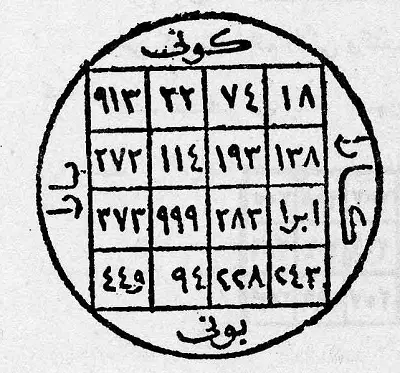 كوني
١٨ ٧٤ ٢٢ ٩١٣
١٣٨ ١٩٣ ١١٤ ٢٧٢
ابرا ٢٨٢ ٩٩٩ ٣٧٣
٢٤٣ ٢٢٨ ٩٤ ٤٤٩
بوني